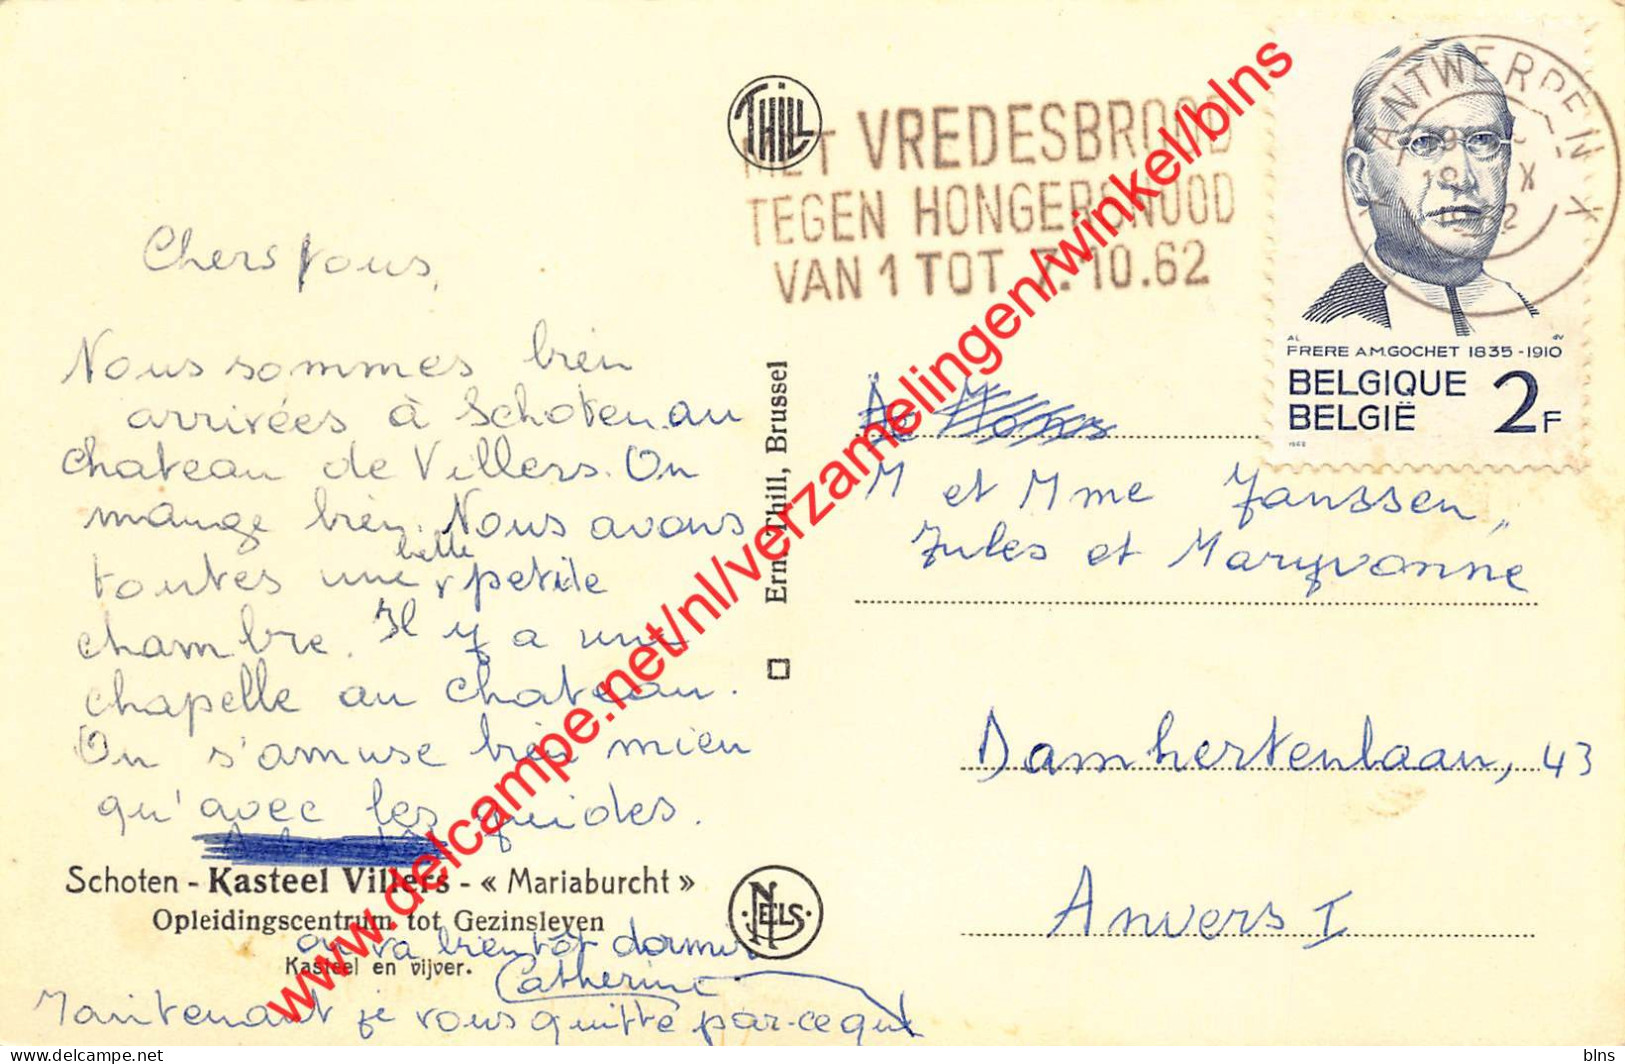 Chers Vous,
Nous sommes bien
arrivées à Schoten au
chateau de Villers. On
mange bien. Nous avons
belle
toutes une petite
chambre. Il y a une
chapelle au chateau.
On s'amuse bien mieu
qu'avec les guides.
Schoten - Kasteel Villers - « Mariaburcht »
Opleidingscentrum tot Gezinsleven
Kasteel en vijver.
Maintenant je vous quitte par-ce que
on va bientôt dormir
Catherine
THILL
Ern. Thill, Brussel
NELS
MET VREDESBROOD
TEGEN HONGERSNOOD
VAN 1 TOT 7.10.62
ANTWERPEN X
FRERE A.M.GOCHET 1835-1910
BELGIQUE
BELGIË
2F
M et Mme Janssen,
Jules et Maryvonne
Damhertenlaan, 43
Anvers I
www.delcampe.net/nl/verzamelingen/winkel/blns
blns